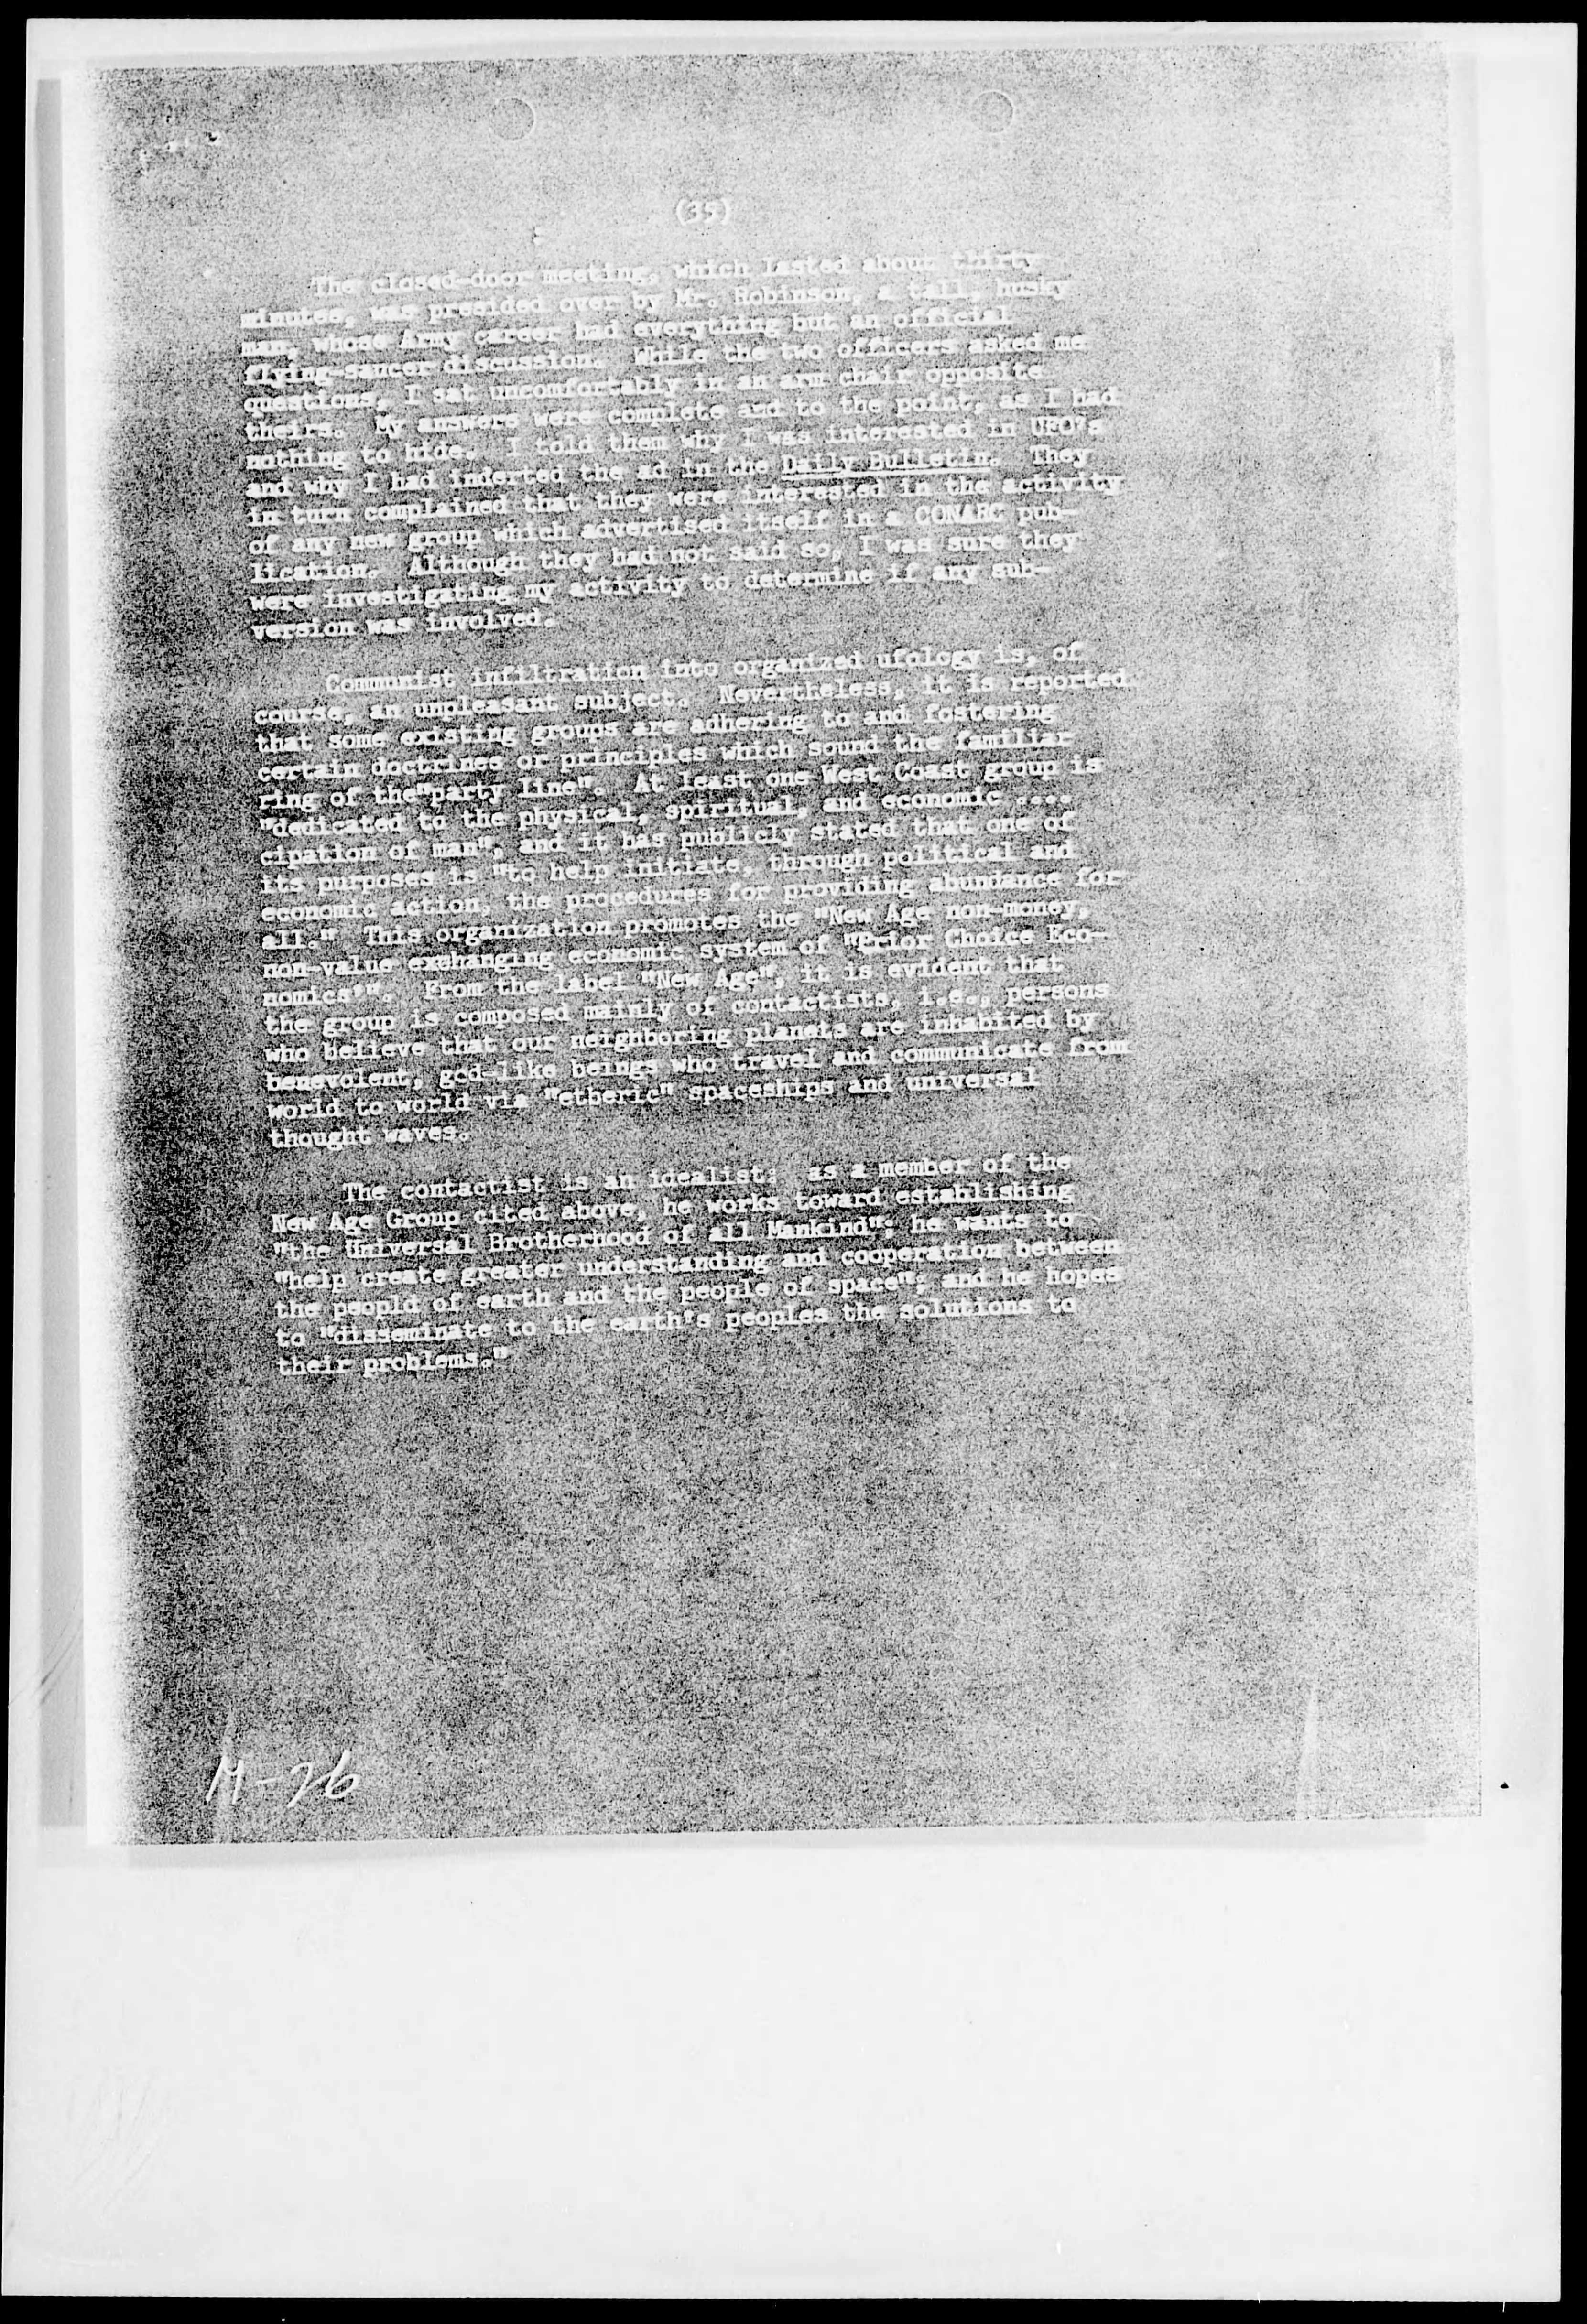 (35)
The closed-door meeting, which lasted about thirty
minutes, was presided over by Mr. Robinson, a tall, husky
man, whose Army career had everything but an official
flying-saucer discussion. While the two officers asked me
questions, I sat uncomfortably in an arm chair opposite
theirs. My answers were complete and to the point, as I had
nothing to hide. I told them why I was interested in UFO's
and why I had inderted the ad in the Daily Bulletin. They
in turn complained that they were interested in the activity
of any new group which advertised itself in a CONARC pub-
lication. Although they had not said so, I was sure they
were investigating my activity to determine if any sub-
version was involved.
Communist infiltration into organized ufology is, of
course, an unpleasant subject. Nevertheless, it is reported
that some existing groups are adhering to and fostering
certain doctrines or principles which sound the familiar
ring of the"party line". At least one West Coast group is
"dedicated to the physical, spiritual, and economic ....
cipation of man", and it has publicly stated that one of
its purposes is "to help initiate, through political and
economic action, the procedures for providing abundance for
all." This organization promotes the "New Age non-money,
non-value exchanging economic system of "Prior Choice Eco-
nomics'". From the label "New Age", it is evident that
the group is composed mainly of contactists, i.e., persons
who believe that our neighboring planets are inhabited by
benevolent, god-like beings who travel and communicate from
world to world via "etheric" spaceships and universal
thought waves.
The contactist is an idealist: as a member of the
New Age Group cited above, he works toward establishing
"the Universal Brotherhood of all Mankind"; he wants to
"help create greater understanding and cooperation between
the peopld of earth and the people of space"; and he hopes
to "disseminate to the earth's peoples the solutions to
their problems."
M-26